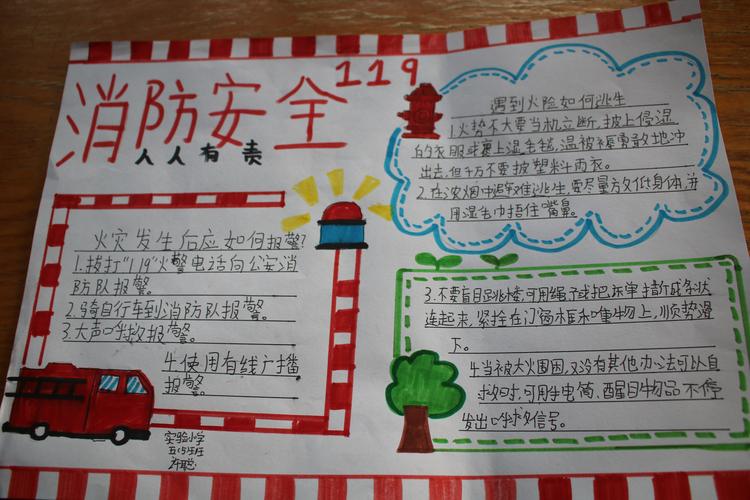 消防安全119
人人有责
火灾发生后应如何报警?
1.拔打"119"火警电话向公安消
防队报警。
2.骑自行车到消防队报警。
3.大声呼救报警。
4.使用有线广播
报警。
实验小学
五(5)班
许聪
遇到火险如何逃生
1.火势不大要当机立断,披上侵湿
的衣服或裹上湿毛毯,湿被褥勇敢地冲
出去,但千万不要披塑料雨衣。
2.在浓烟中避难逃生,要尽量放低身体,并
用湿毛巾捂住嘴鼻。
3.不要盲目跳楼,可用绳子或把床单撕成条状
连起来,紧拴在门窗框和重物上,顺势滑
下。
4.当被大火围困,又没有其他办法可以自
救时,可用手电筒、醒目物品不停
发出呼救信号。